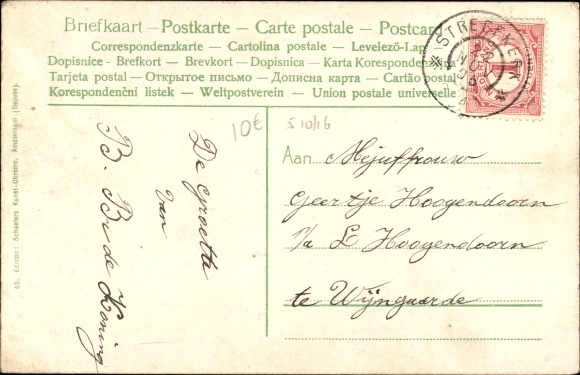 Briefkaart — Postkarte — Carte postale — Postcard
Correspondenzkarte — Cartolina postale — Levelezö-Lap
Dopisnice - Brefkort — Brevkort — Dopisnica — Karta Korespondencyjna
Tarjeta postal — Открытое письмо — Дописна карта — Cartão postal
Korespondenční listek — Weltpostverein — Union postale universelle
STREEFKERK
10€
5 10/16
De groette
van
B. B. de Koning
Aan Mejuffrouw
Geertje Hoogendoorn
p/a L Hoogendoorn
te Wijngaarde
49. Edition: Schaefers Kunst-Chromo, Amsterdam (Depose).